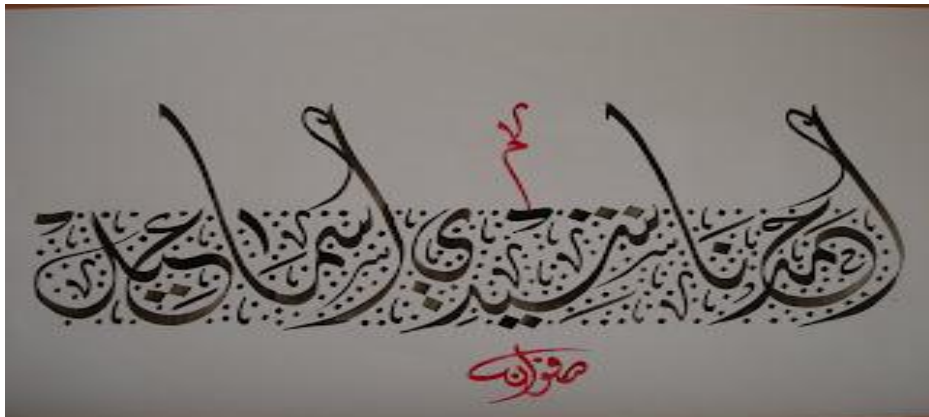 احمد ناشيدي اسماعيل
صفوان